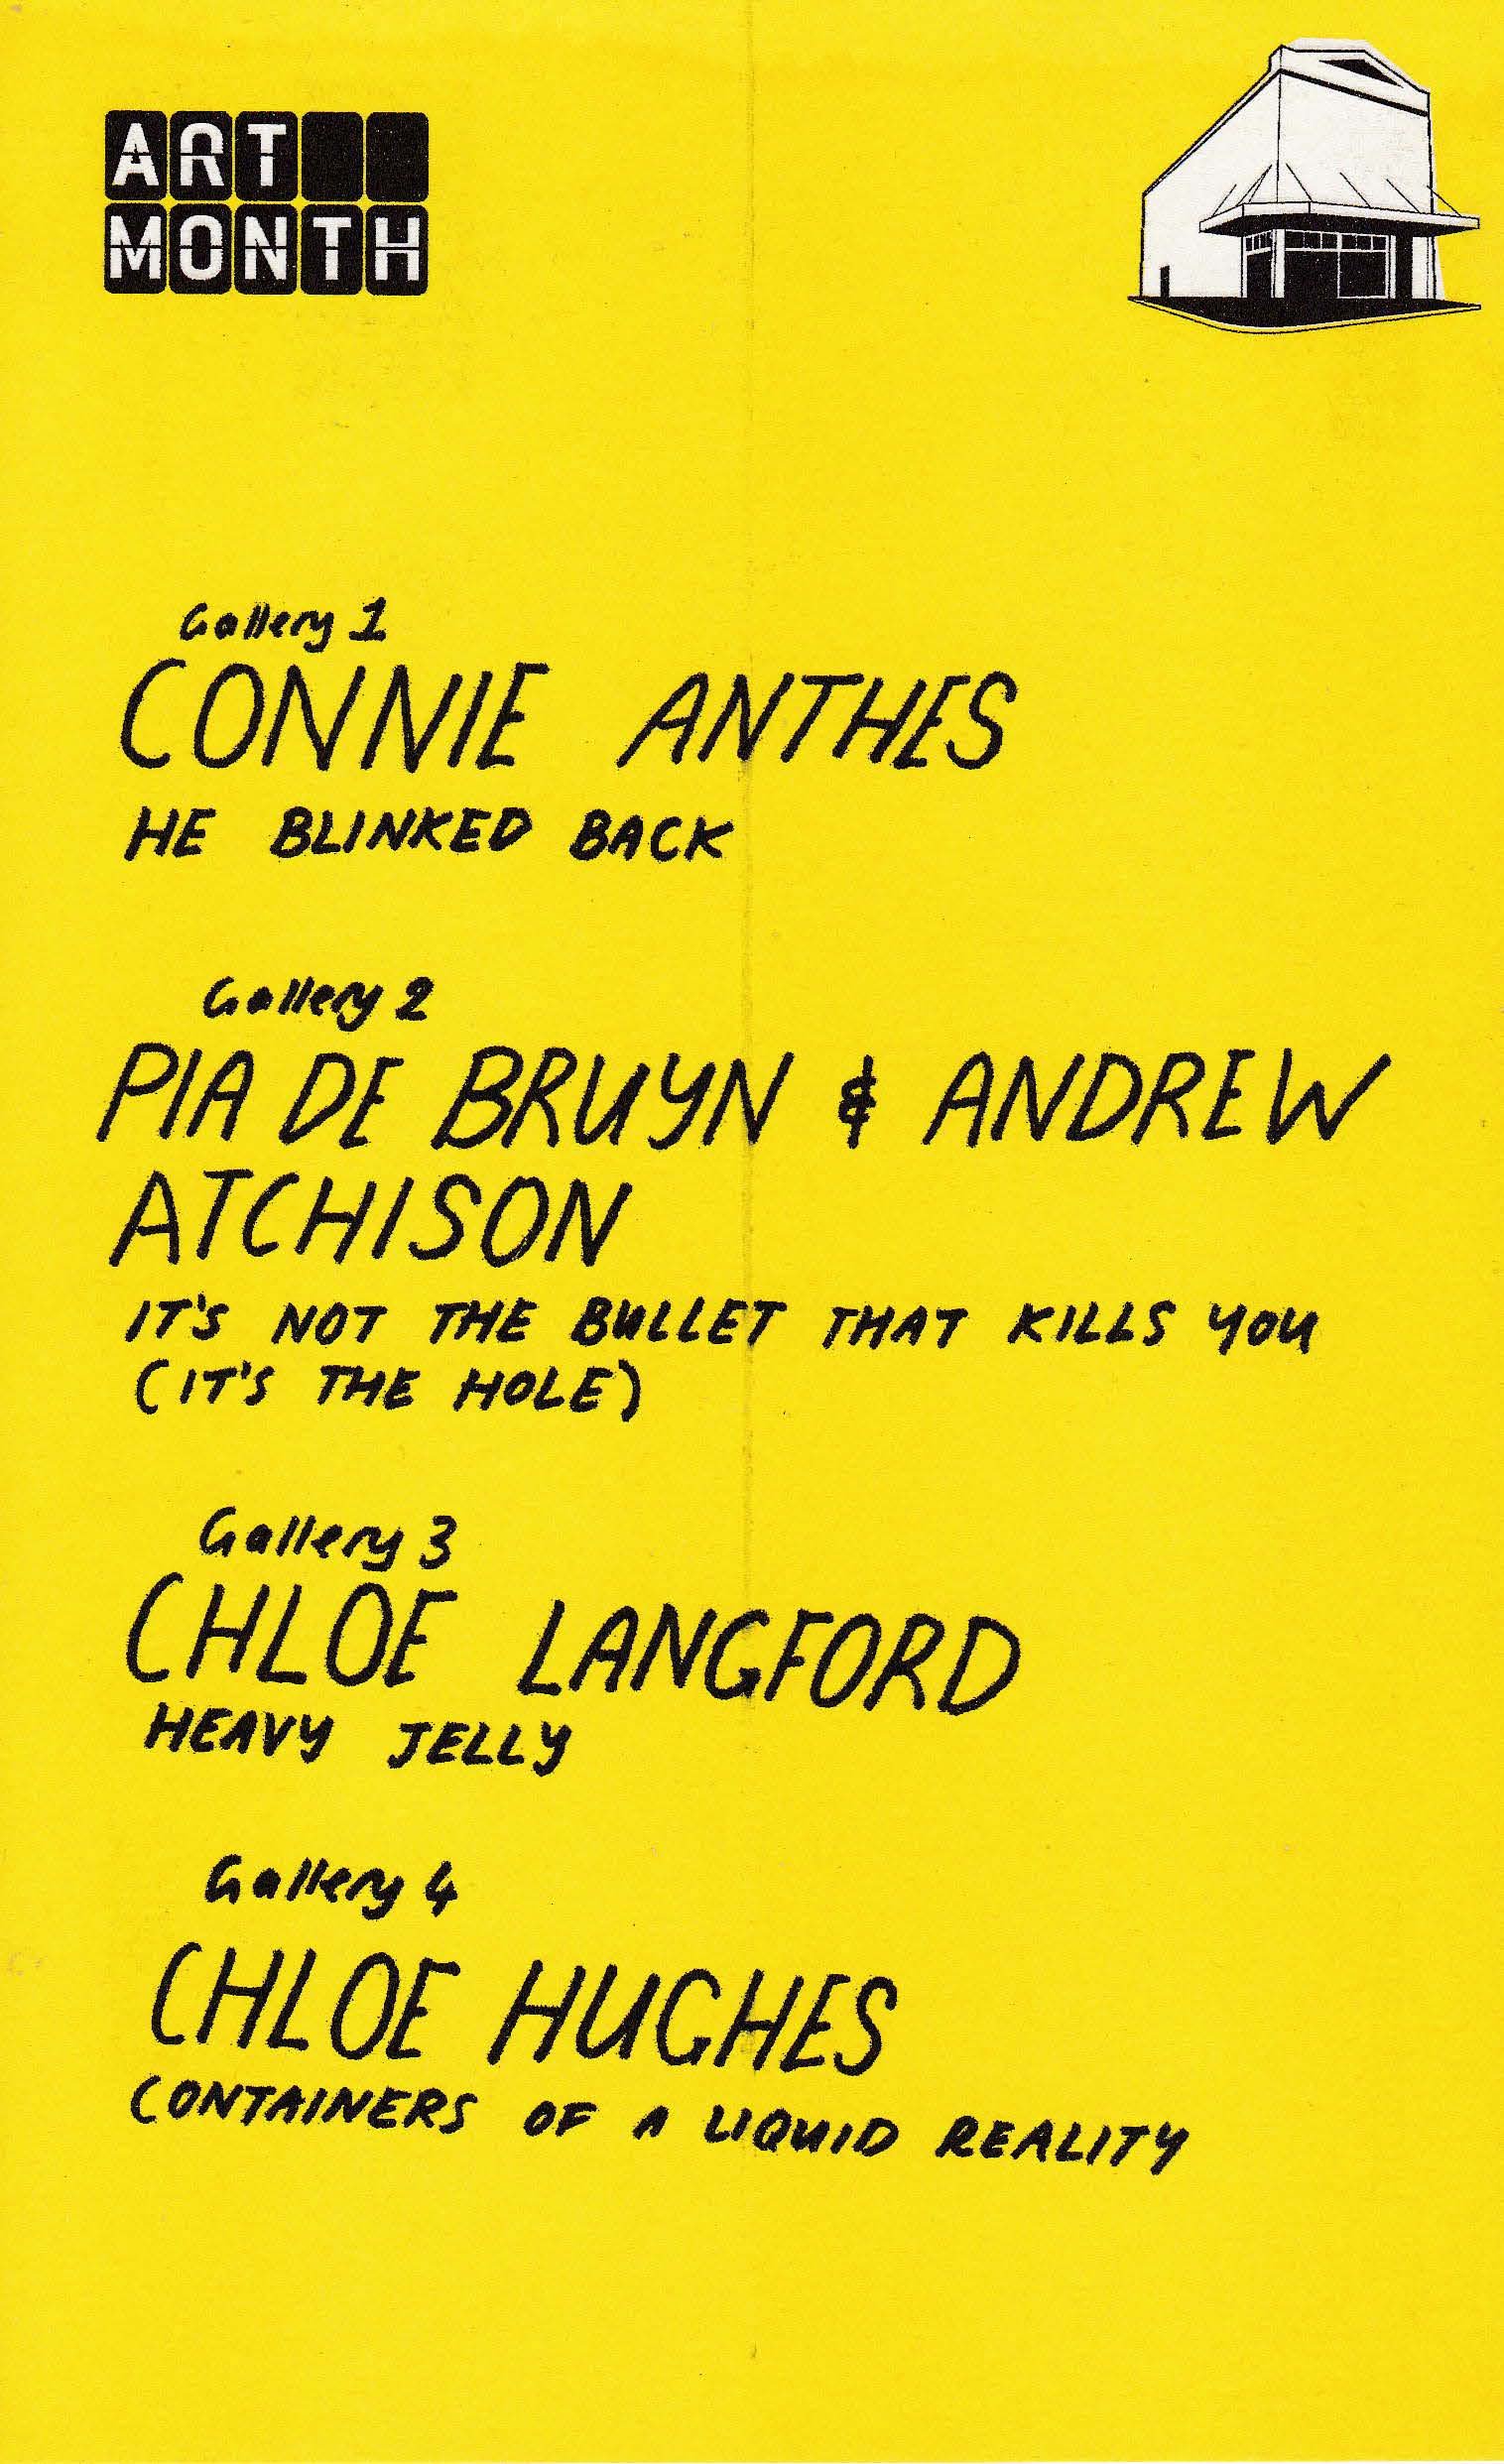 ART
MONTH
Gallery 1
CONNIE ANTHES
HE BLINKED BACK
Gallery 2
PIA DE BRUYN & ANDREW
ATCHISON
IT'S NOT THE BULLET THAT KILLS YOU
(IT'S THE HOLE)
Gallery 3
CHLOE LANGFORD
HEAVY JELLY
Gallery 4
CHLOE HUGHES
CONTAINERS OF A LIQUID REALITY